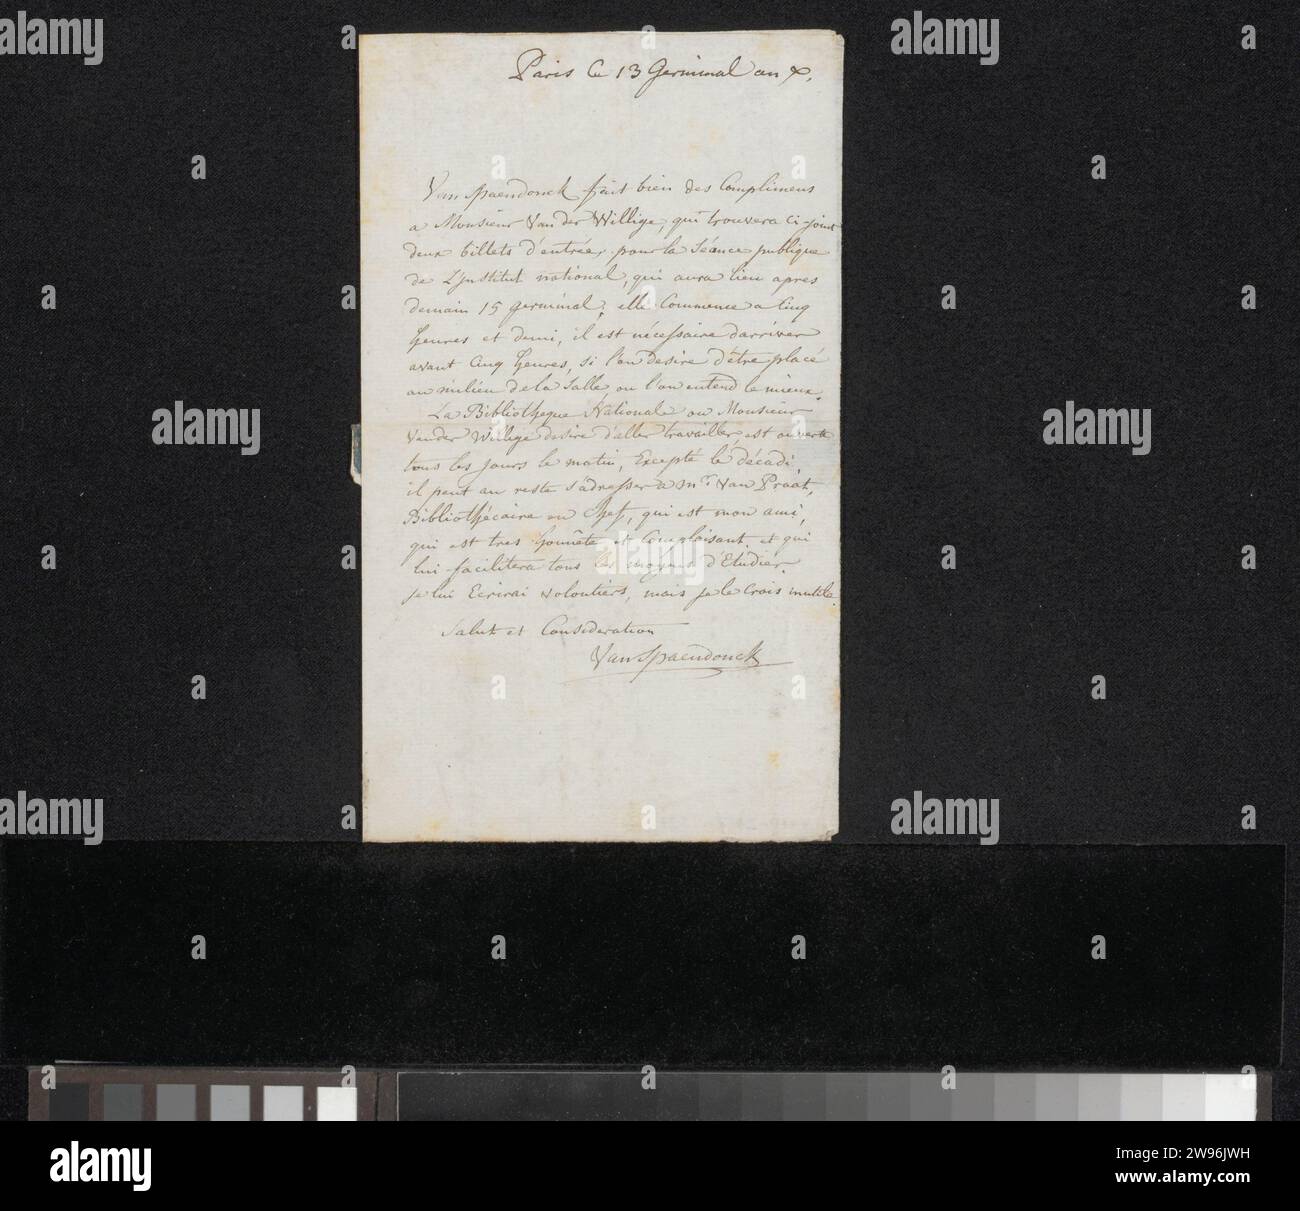 Paris Ce 13 Germinal an X.
Van Spaendonck fait bien des Complimens
a Monsieur Van der Willige, qui trouvera ci-joint
deux billets d'entrée, pour la Séance publique
de L'Institut national, qui aura lieu apres
demain 15 germinal, elle Commence a Cinq
heures et demi, il est nécessaire d'arriver
avant Cinq heures, si l'on desire d'être placé
au milieu de la Salle ou l'on entend le mieux.
La Bibliotheque National ou Monsieur
Vander Willige desire d'aller travailler, est ouverte
tous les jours le matin, Excepté le décadi,
il peut au reste s'adresser a Mr. Van Praat,
Bibliothécaire en Chef, qui est mon ami,
qui est tres honnête et Complaisant et qui
lui facilitera tous les moyens d'Etudier.
je lui Ecrirai volontiers, mais je le Crois inutile.
Salut et Consideration
Van Spaendonck
alamy
Image ID: 2W96JWH
www.alamy.com